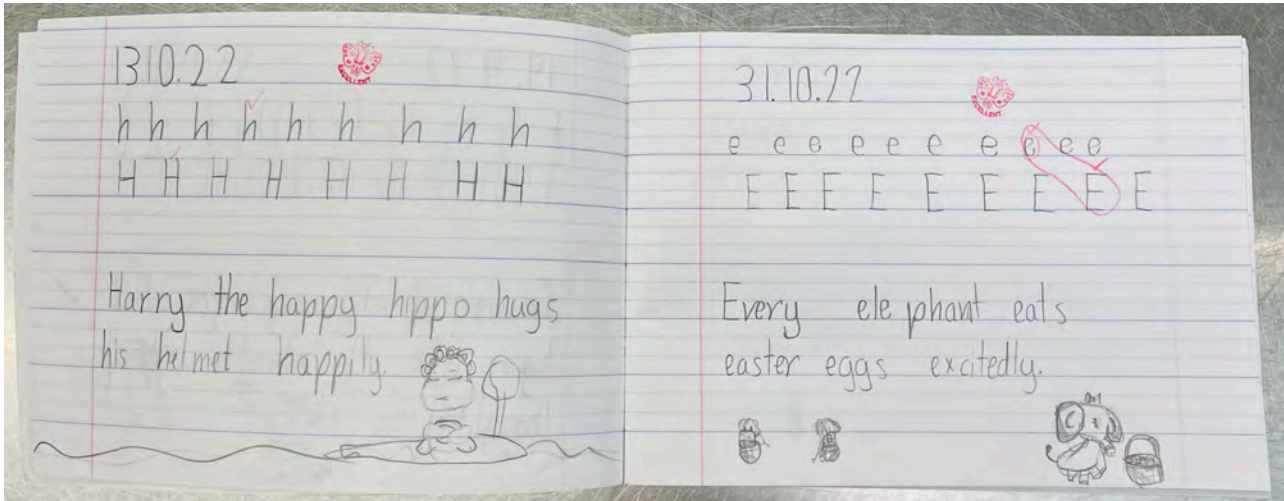 13.10.22
EXCELLENT
h h h h h h h h h
H H H H H H H H
Harry the happy hippo hugs
his helmet happily.
31.10.22
EXCELLENT
e e e e e e e e e e
E E E E E E E E E
Every elephant eats
easter eggs excitedly.